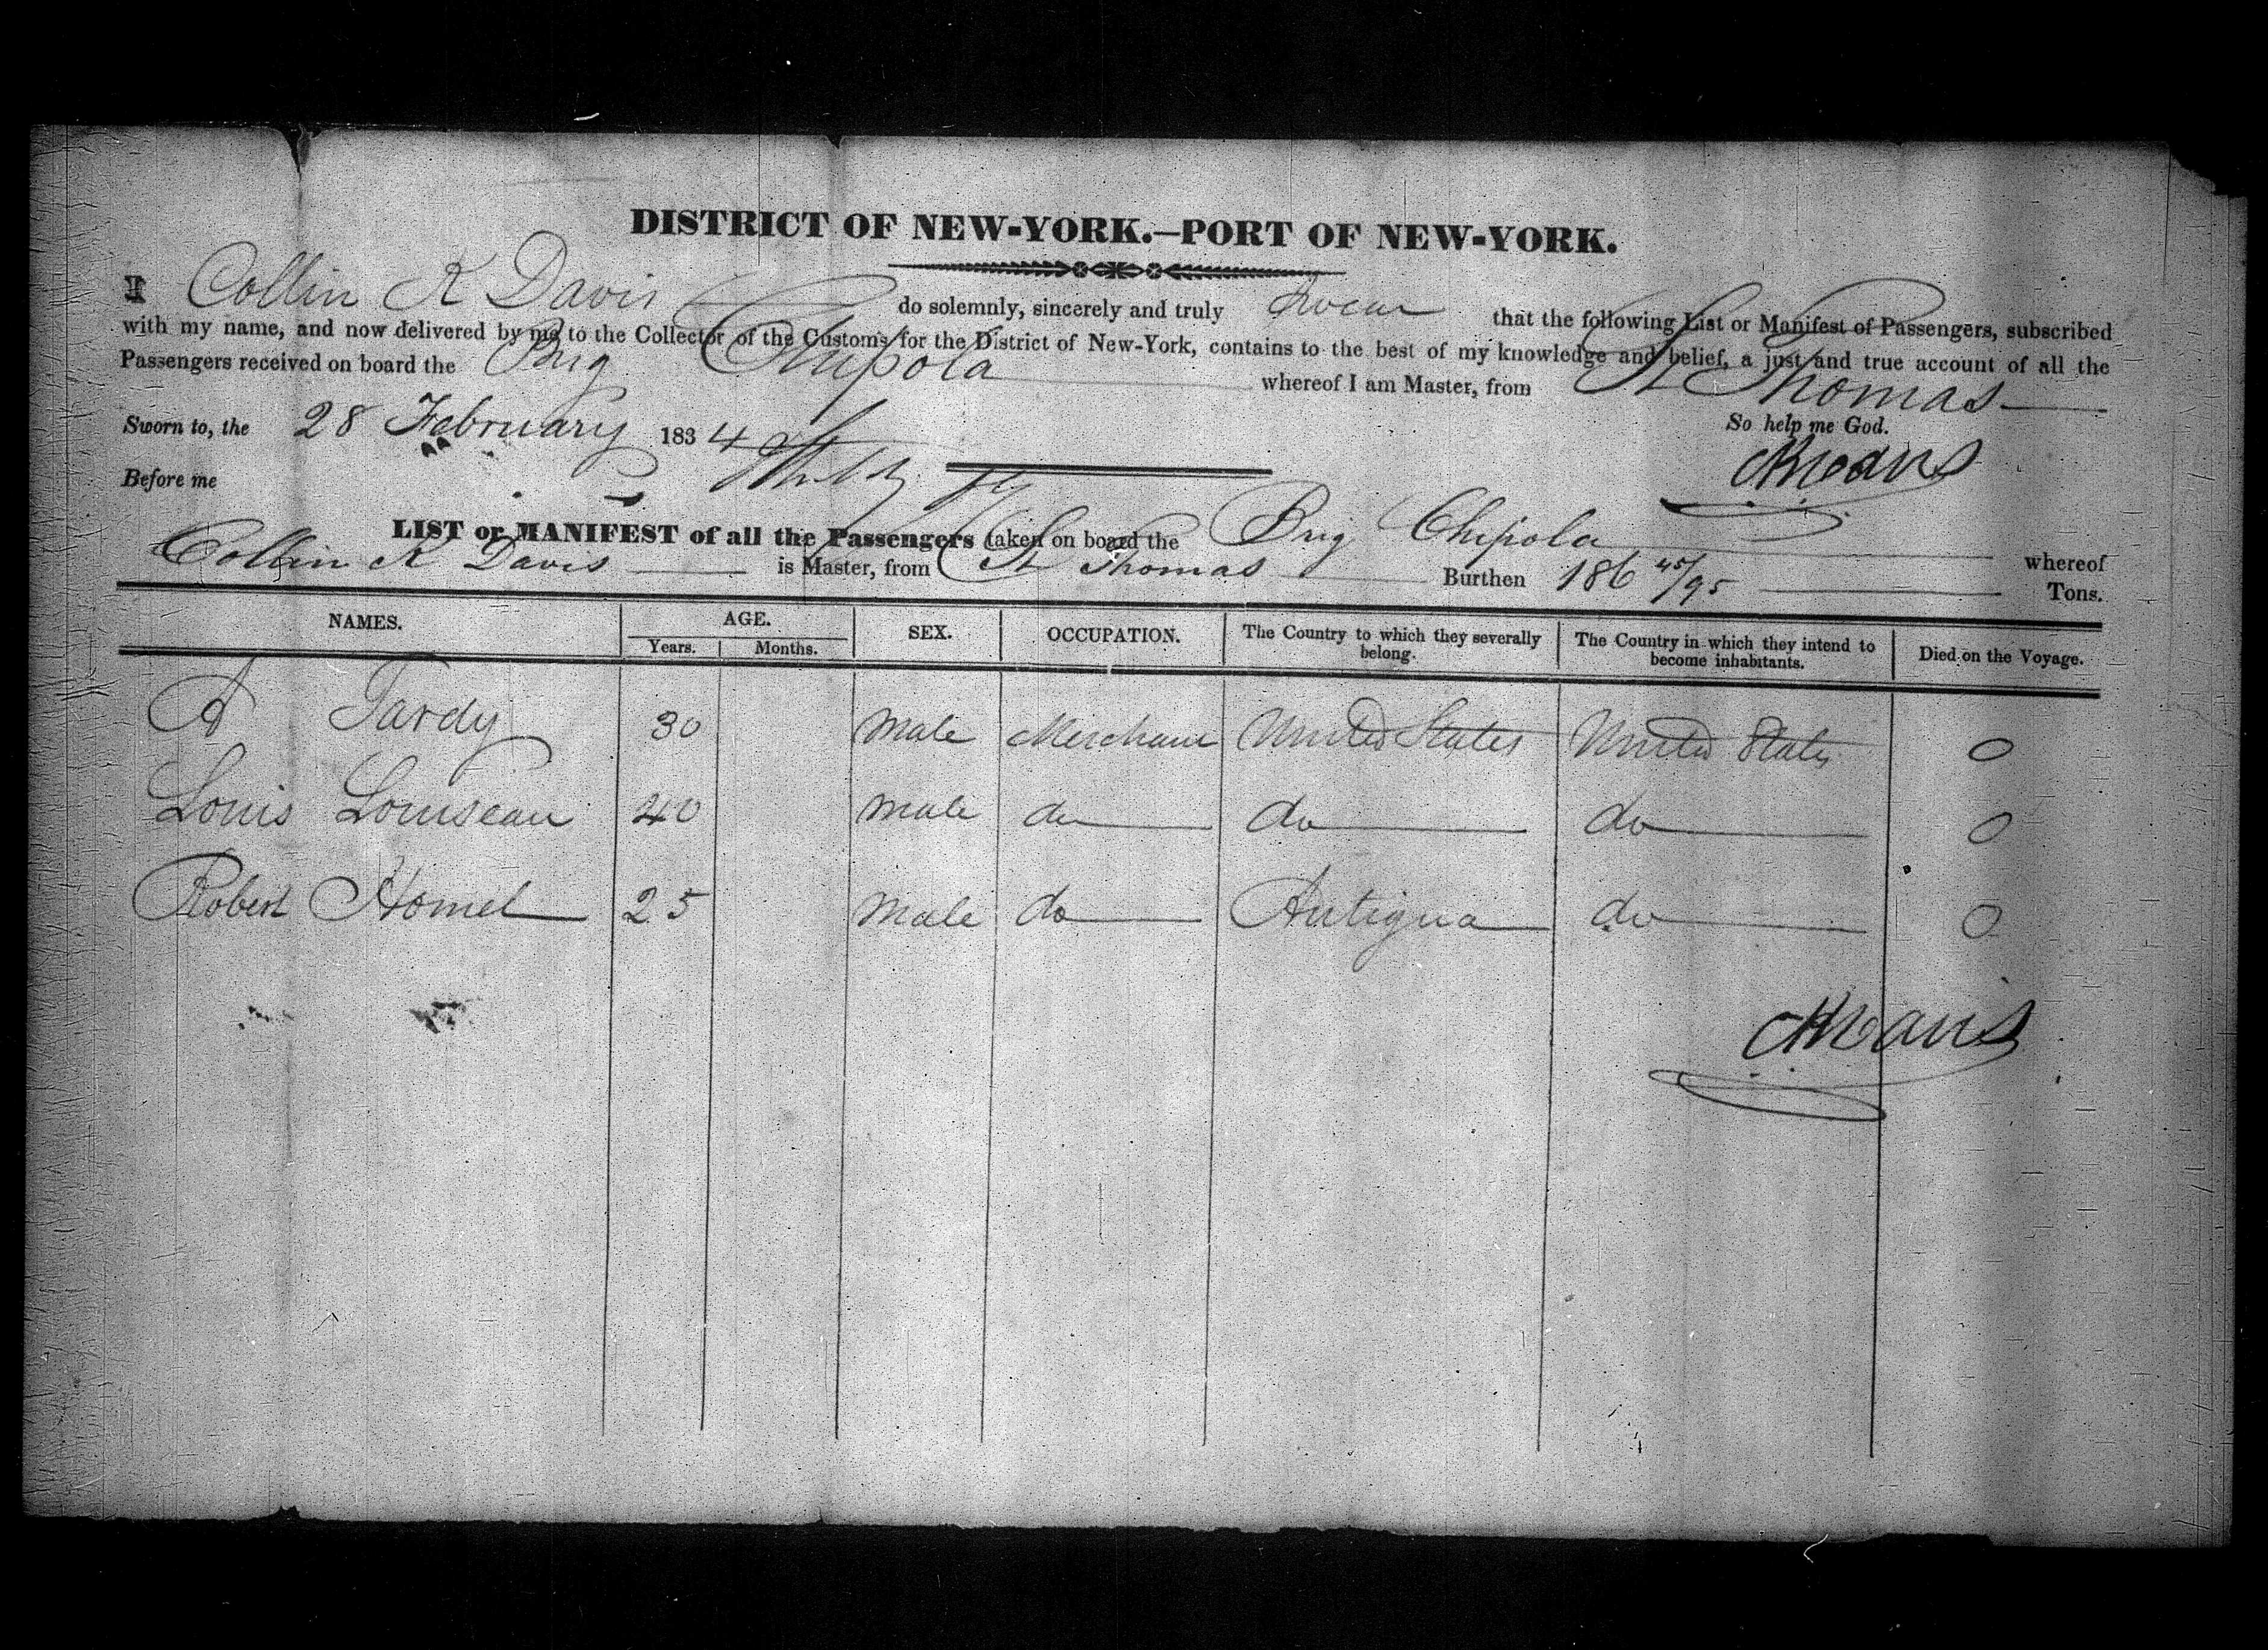 DISTRICT OF NEW-YORK.—PORT OF NEW-YORK.
I Collin K Davis do solemnly, sincerely and truly swear that the following List or Manifest of Passengers, subscribed
with my name, and now delivered by me to the Collector of the Customs for the District of New-York, contains to the best of my knowledge and belief, a just and true account of all the
Passengers received on board the Brig Chipola whereof I am Master, from St Thomas
Sworn to, the 28 February 1834 So help me God.
Before me CKDavis
LIST or MANIFEST of all the Passengers taken on board the Brig Chipola whereof
Collin K Davis is Master, from St Thomas Burthen 186 45/95 Tons.
NAMES. AGE. SEX. OCCUPATION. The Country to which they severally belong. The Country in which they intend to become inhabitants. Died on the Voyage.
Years. Months.
A Tardy 30 Male Merchant United States United States 0
Louis Louiseau 40 Male do do do 0
Robert Homel 25 Male do Antigua do 0
CKDavis